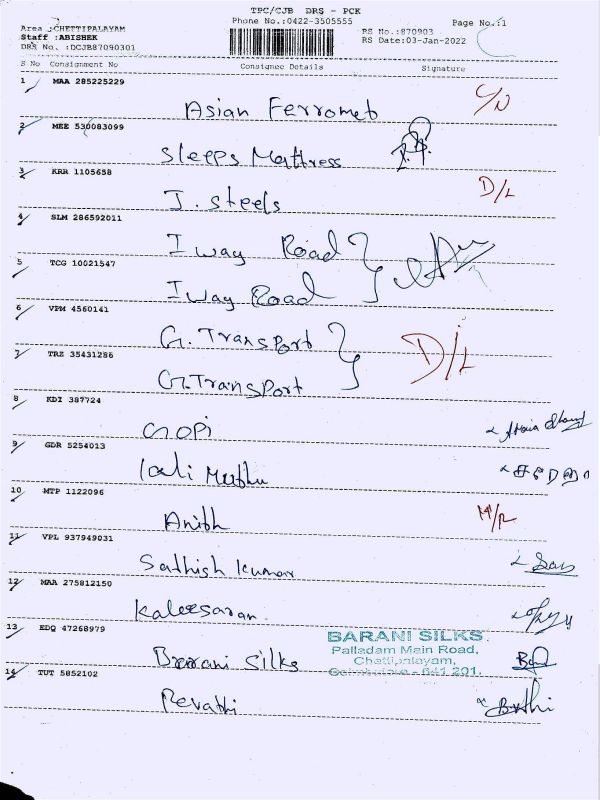 TPC/CJB DRS - PCK
Phone No.:0422-3505555
Page No.:1
Area :CHETTIPALAYAM
Staff :ABISHEK
DRS No. :DCJB87090301
RS No.:870903
RS Date:03-Jan-2022
S No Consignment No Consignee Details Signature
1 MAA 285225229
Asian Ferromet C/N
2 MEE 530083099
Sleeps Mattress
3 KRR 1105658
J. Steels D/L
4 SLM 286592011
I way Road
5 TCG 10021547
I way Road
6 VPM 4560141
G. Transport
D/L
7 TRZ 35431286
G. Transport
8 KDI 387724
Gopi
9 GDR 5254013
Kali Muthu
10 MTP 1122096
Anith M/R
11 VPL 937949031
Sathish kumar
12 MAA 275812150
Kaleesaran.
13 EDQ 47268979
BARANI SILKS
Palladam Main Road,
Chettipalayam,
Coimbatore - 641 201.
Barani Silks
14 TUT 5852102
Revathi